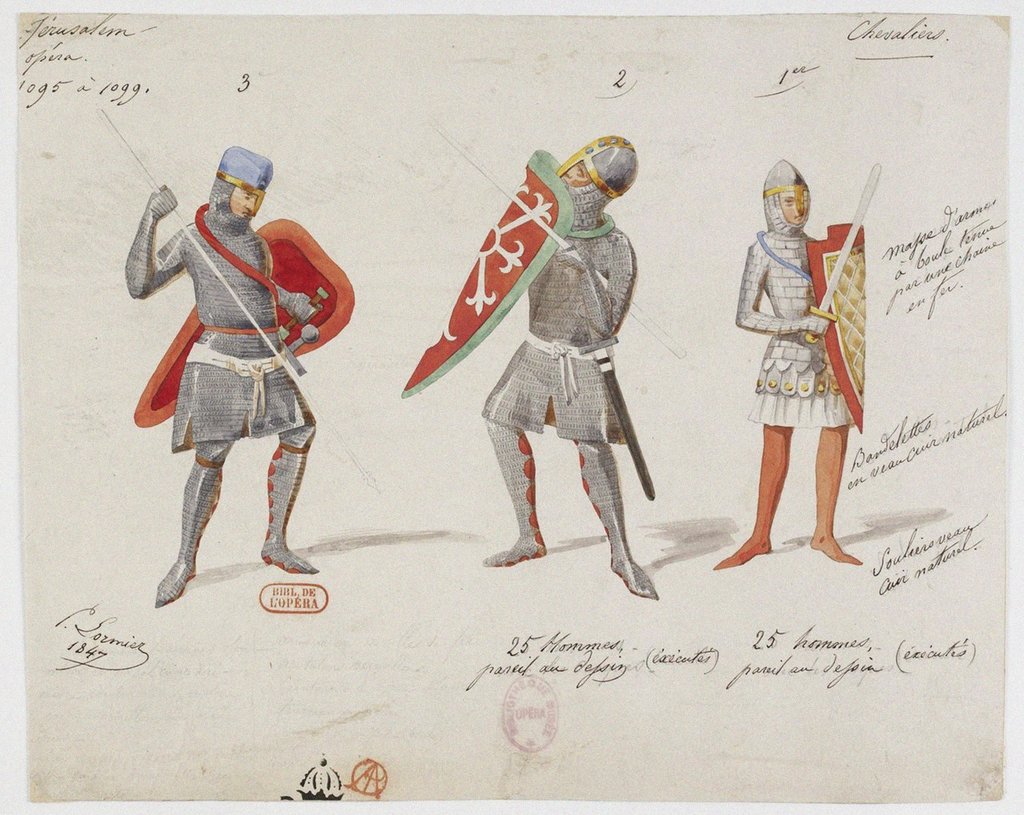 Jérusalem
opéra.
1095 à 1099.
Chevaliers.
3
2
1er
masse d'armes
à boule tenue
par une chaine
en fer.
Bandelettes
en veau cuir naturel.
Souliers veau
cuir naturel.
BIBL. DE
L'OPÉRA
P. Lormier
1847
25 Hommes,
pareil au dessin (éxécutés)
25 hommes,
pareil au dessin (éxécutés)
BIBLIOTHÈQUE MUSÉE
OPÉRA